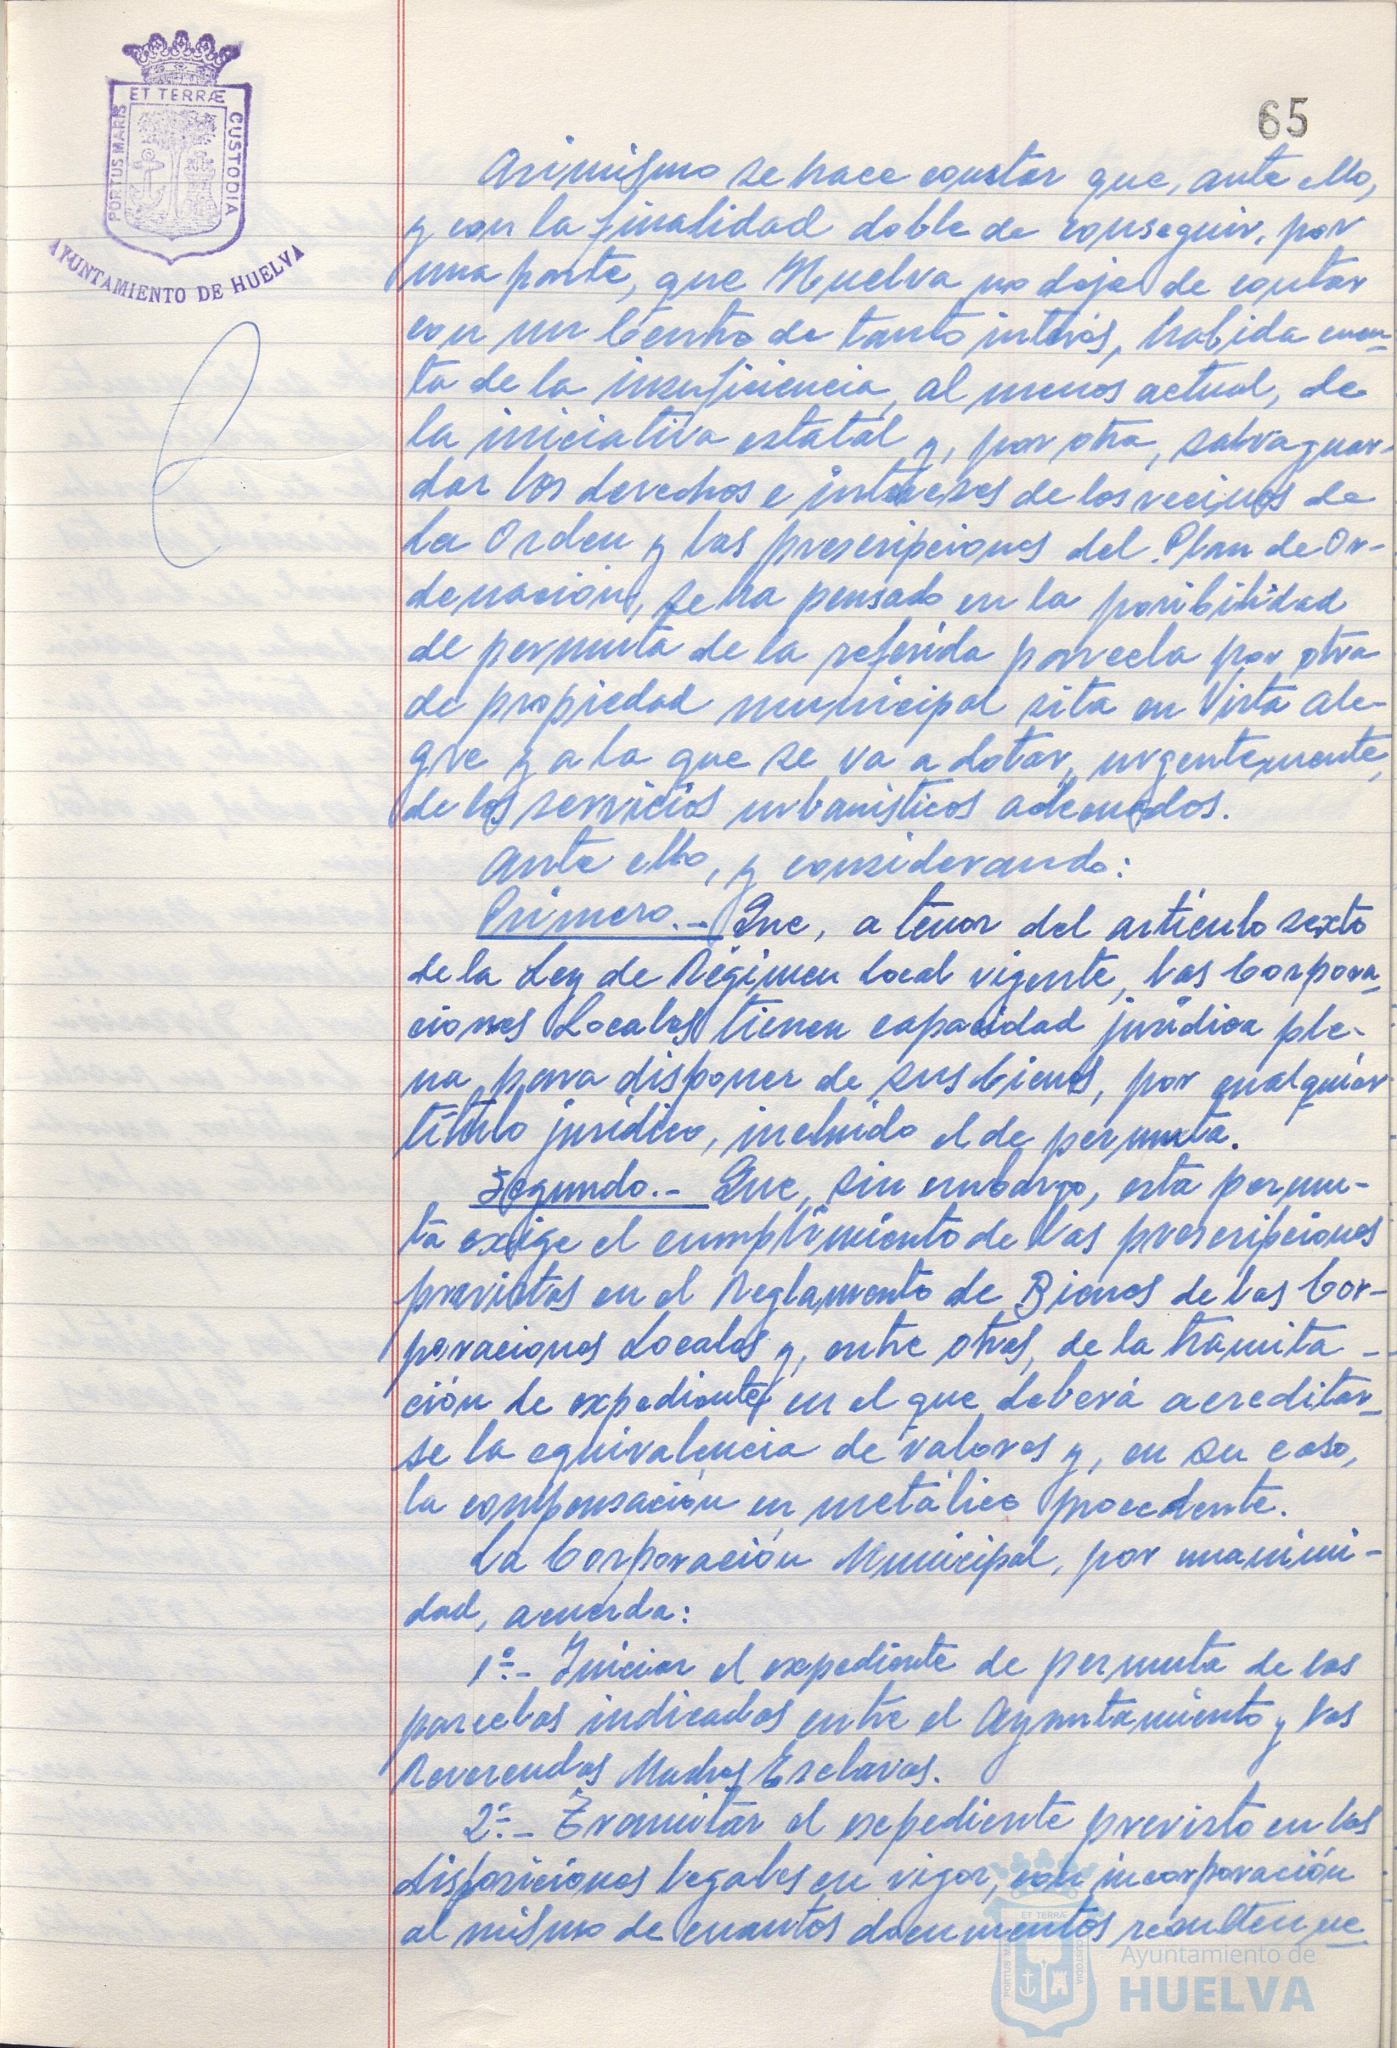 ET TERRÆ
PORTUS MARIS
CUSTODIA
AYUNTAMIENTO DE HUELVA
65
Asimismo se hace constar que, ante ello,
y con la finalidad doble de conseguir, por
una parte, que Huelva no deje de contar
con un Centro de tanto interés, habida cuen-
ta de la insuficiencia, al menos actual, de
la iniciativa estatal y, por otra, salvaguar-
dar los derechos e intereses de los vecinos de
La Orden y las prescripciones del Plan de Or-
denación, se ha pensado en la posibilidad
de permuta de la referida parcela por otra
de propiedad municipal sita en Vista Ale-
gre y a la que se va a dotar, urgentemente,
de los servicios urbanísticos adecuados.
Ante ello, y considerando:
Primero.- Que, a tenor del artículo sexto
de la Ley de Régimen Local vigente, las Corpora-
ciones Locales tienen capacidad jurídica ple-
na para disponer de sus bienes, por cualquier
título jurídico, incluido el de permuta.
Segundo.- Que, sin embargo, esta permu-
ta exige el cumplimiento de las prescripciones
previstas en el Reglamento de Bienes de las Cor-
poraciones Locales y, entre otras, de la tramita-
ción de expediente en el que deberá acreditar-
se la equivalencia de valores y, en su caso,
la compensación en metálico procedente.
La Corporación Municipal, por unanimi-
dad, acuerda:
1º.- Iniciar el expediente de permuta de las
parcelas indicadas entre el Ayuntamiento y las
Reverendas Madres Esclavas.
2º.- Tramitar el expediente previsto en las
disposiciones legales en vigor, con incorporación
al mismo de cuantos documentos resulten ne
ET TERRÆ
CUSTODIA
Ayuntamiento de
HUELVA